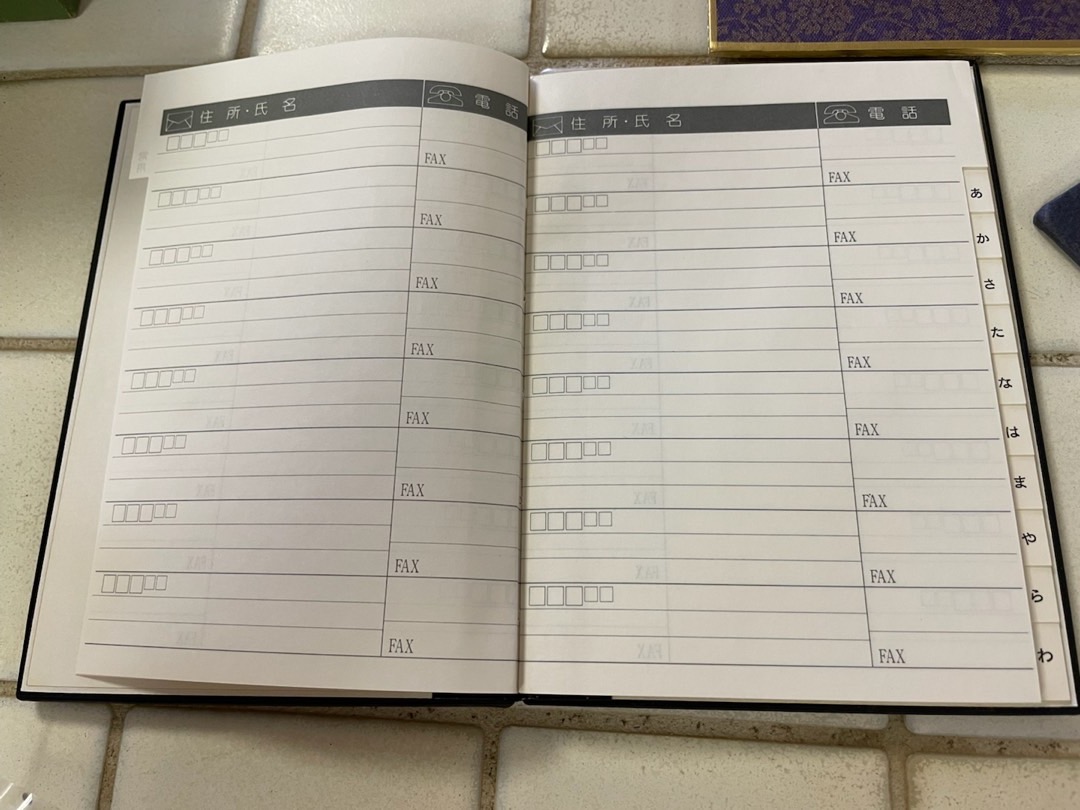 住所・氏名 電話
FAX
FAX
FAX
FAX
FAX
FAX
FAX
FAX
住所・氏名 電話
FAX
FAX
FAX
FAX
FAX
FAX
FAX
FAX
あ
か
さ
た
な
は
ま
や
ら
わ